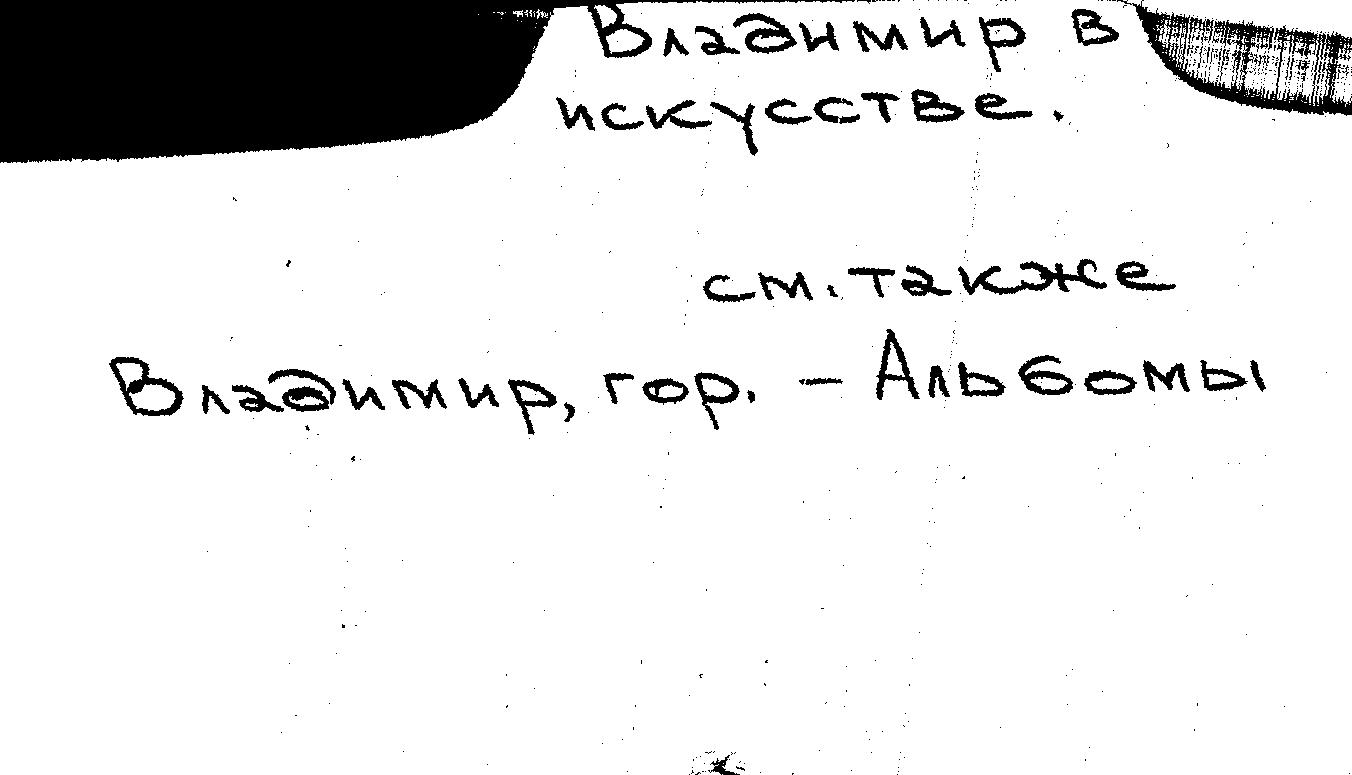 Владимир в
искусстве.
см. также
Владимир, гор. – Альбомы